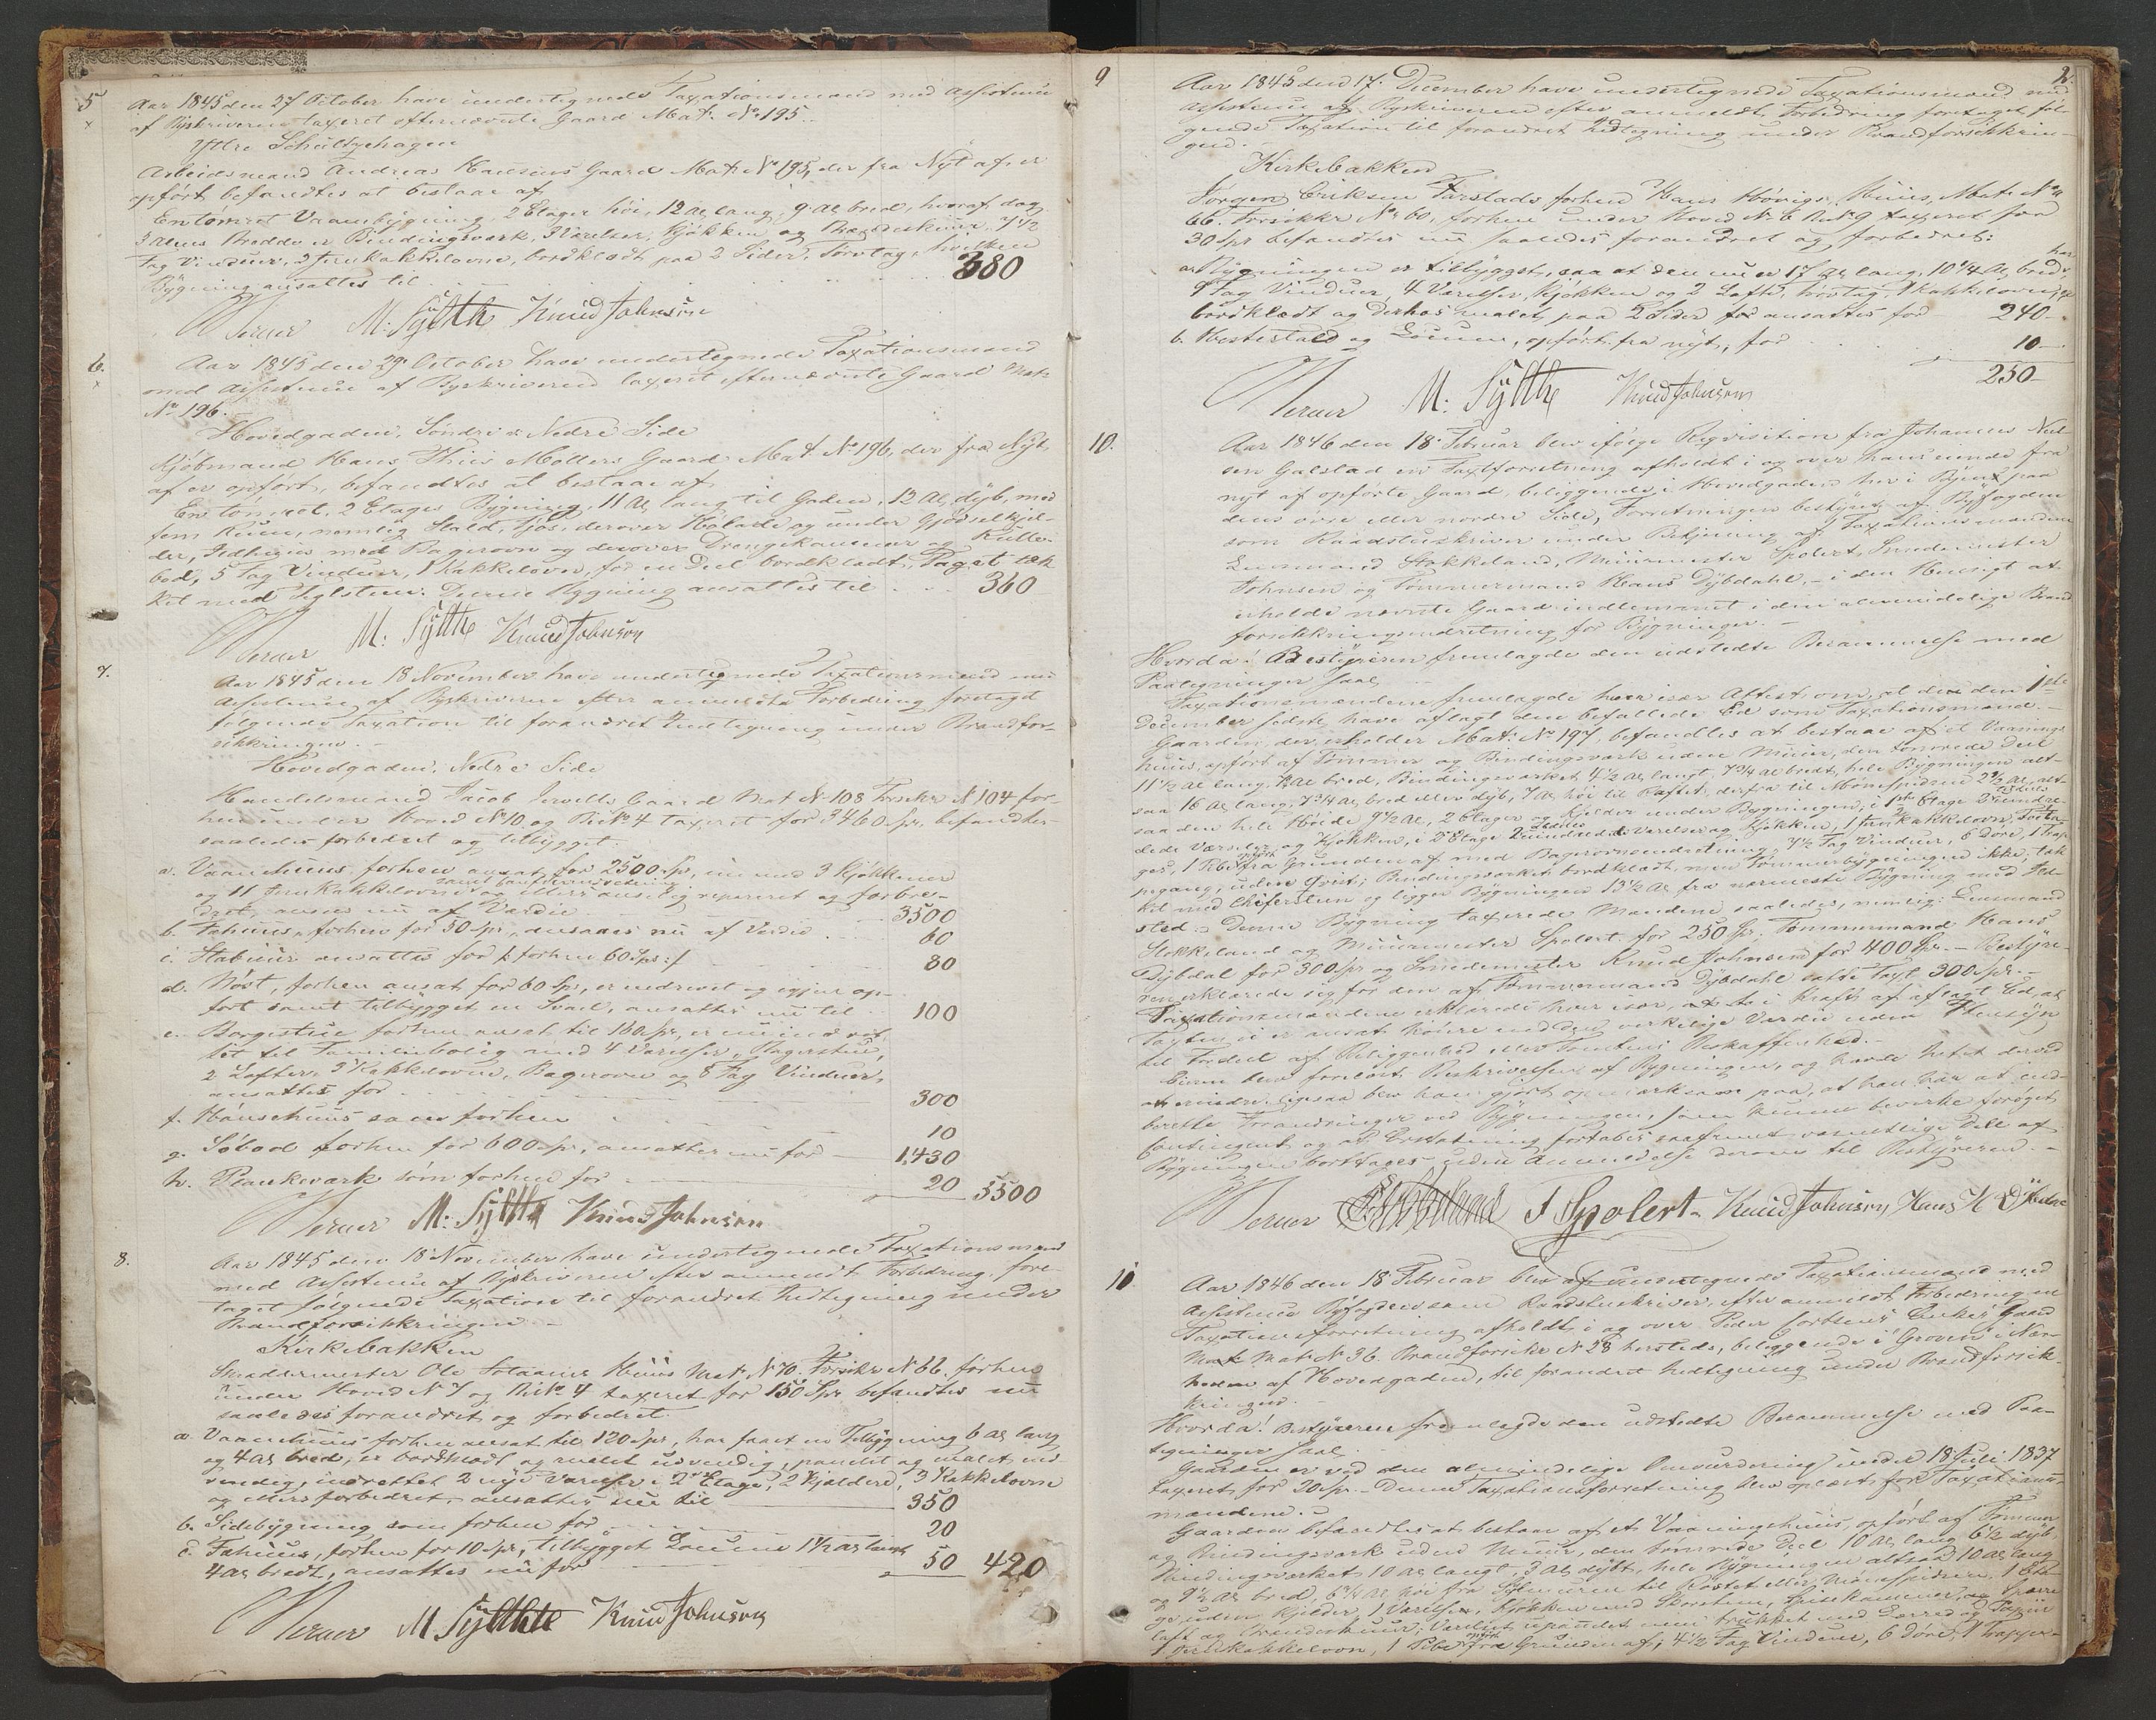 5
Aar 1845 den 27 October have undertegnede Taxationsmænd med Assistence
af Byskriveren taxeret efternævnte Gaard Mat. No 195.
Yttre Schultzehagen
Arbeidsmand Andreas Hansens Gaard Mat. No 195, der fra Nyt af er
opført befandtes at bestaae af
En tømret Vaanbygning, 2 Etager höi, 12 al lang, 9 al bred, hvoraf dog
3 alens Bredde er Bindingsværk, 3 Værelser, Kjøkken og 7 1/2
Fag Vinduer, 2 Jernkakkelovne, bordklædt paa 2 Sider, Torvtag, hvilken
Bygning ansattes til 380
Werner M: Sylthe Knud Johnsen
6.
Aar 1845 den 29 October have undertegnede Taxationsmænd
med Assistence af Byskriveren taxeret efternævnte Gaard Mat.
No 196.
Hovedgaden, Söndre & Nedre Side
Kjöbmand Hans Thiis Möllers Gaard Mat. No 196, der fra Nyt
af er opfört, befandtes at bestaae af
En tömret 2 Etages Bygning, 11 Al lang til Gaden, 13 Al dyb, med
fem Rum, nemlig Stald, Fjös, derover Hölade og under Gjödselkjel-
der, Ildhuus med Bagerovn og derover Drengekammer og Rulle-
bod, 5 Fag Vinduer, 1 Kakkelovn, for en Deel bordklædt, Taget tæk
ket med Tylsteen. Denne Bygning ansattes til 360
Werner M: Sylthe Knud Johnson
7.
Aar 1845 den 18 November have undertegnede Taxationsmænd med
Assistence af Byskriveren efter anmeldte Forbedring foretaget
følgende Taxation til forandret Indtegning under Brandfor-
sikkringen.
Hovedgaden, Nedre Side
Handelsmand Jacob Gaard Mat No 108 Forsikr No 104 for-
hen under Hoved No 10 og No 4 taxeret for 3460 Spr, befandtes
saaledes forbedret og tilbygget.
a. Vaanehuus forhen ansat for 2500 Spr, nu med 3 Kjøkkener
og 11 Jernkakkelovne og ellers anseelig repareret og forbe-
dret, ansees nu af Værdie 3500
b. Fæhuus, forhen for 50 Spr, ansaaes nu af Værdie 60
c. Stabuur ansattes for /: forhen 60 Spr :/ 80
d. Nöst, forhen ansat for 60 Spr, er nedrevet og igjen op-
fört samt tilbygget en Sval, ansattes nu til 100
e. Borgestue forhen ansat til 160 Spr, er nu ind ret
tet til Familiebolig med 4 Værelser, Bagerstue,
2 Lofter, 3 Kakkelovne, Bagerovn og 8 Fag Vinduer,
ansattes for 300
f. Hönsehuus som forhen 10
g. Söbod forhen for 600 Spr, ansattes nu for 1,430
h. Plankeværk som forhen for 20 5500
Werner M: Sylthe Knud Johnson
8.
Aar 1845 den 18 November have undertegnede Taxationsmænd
med Assistence af Byskriveren efter anmeldt Forbedring fore-
taget følgende Taxation til forandret Indtegning under
Brandforsikkringen
Kirkebakken
Skræddermester Ole Huus Mat No 70 Forsikr No 66 forhen
under Hoved No 7 og No 4 taxeret for 150 Spr befandtes nu
saaledes forandret og forbedret.
a. Vaanehuus forhen ansat til 120 Spr, har faaet en Tilbygning 6 al lang
og 4 al bred, er bordklædt og malet udvendig, panelet og malet ind-
vendig, indrettet 2 nye Værelser i 2den Etage, 2 Kjældere, 3 Kakkelovne
og ellers forbedret, ansattes nu til 350
b. Sidebygning som forhen for 20
c. Fæhuus, forhen for 10 Spr, tilbygget 1 1/2 al lang
4 al bredt, ansattes nu for 50 420
Werner M Sylthe Knud Johnson
2.
9
Aar 1845 den 17. December have undertegnede Taxationsmænd med
Assistence af Byskriveren efter anmeldt Forbedring foretaget föl-
gende Taxation til forandret Indtegning under Brandforsikkrin-
gen.
Kirkebakken
Jørgen Eriksen Farstads forhen Hans Hövigs Huus, Mat No
66. Forsikkr No 60, forhen under Hoved No 6 No 9 taxeret for
30 Spr befandtes nu saaledes forandret og forbedret:
a. Bygningen er tilbygget, saa at den nu er 17 al lang, 10 1/4 Al bred, har
9 Fag Vinduer, 4 Værelser, Kjøkken og 2 Lofte, torvtag, 1 Kakkelovn, er
bordklædt og derhos malet paa 2 Sider ansattes for 240
b. Hestestald og, opfört fra nyt, for 10
250
Werner M: Sylthe Knud Johnson
10.
Aar 1846 den 18. Februar blev ifølge Reqvisition fra Johannes Niel-
sen Galstad en Taxtforretning afholdt i og over hans eiende fra
nyt af opförte Gaard, beliggende i Hovedgaden her i Byen paa
dens övre eller nordre Side, Forretningen bestyret af Byfogden
som Raadstueskriver under Betjening af Taxationsmændene
Stokkeland, Muurmester Spolert, Smedemester
Johnsen og Tömmermand Hans Dybdahl, i den Hensigt at
erholde nævnte Gaard indlemmet i den almindelige Brand
forsikkringsindretning for Bygninger.
Hvorda! Bestyreren fremlagde den udstedte Berammelse med
Paategninger saal.
Taxationsmændene fremlagde hver især Attest om at de den 1ste
December sidste have aflagt den befallede Ed som Taxationsmænd.
Gaarden, der erholder Mat. No 197, befandtes at bestaae af et Vaanings
huus, opfört af Tömmer og Bindingsværk uden Muur, den tömrede Deel
11 1/2 al lang, al bred, Bindingsværket 4 1/2 al langt, 7 3/4 al bredt, hele Bygningen alt-
saa 16 al lang, 7 3/4 al bred eller dyb, 7 al höi til Raftet, derfra til Mönespidsen 2 1/2 al, alt-
saa den hele Höide 9 1/2 al, 2 Etager og Kjelder under Bygningen, i 1ste Etage 3
Værelser og Kjøkken, i 2 Etage Værelser og Kjøkken,
1 Pibe fra Grunden af med Bagerovnsindretning, 7 1/2 Fag Vinduer, 6 Döre, 1 Trap
pegang, uden Qvist; Bindingsværket bordklædt, men Tömmerbygningen ikke; tak
ket med Skifersteen og ligger Bygningen 13 1/2 al fra nærmeste Bygning med Ild-
sted. Denne Bygning taxerede Mændene saaledes, nemlig:
Stokkeland og Muurmester Spolert for 250 Spr, Tömmermand Hans
Dybdal for 300 Spr og Smedemester Knud Johnsen for 400 Spr. Bestyre-
ren erklærede sig for den af Tömmermand Dybdahl satte Taxt 300 Spr.
Taxationsmændene erklærede hver især, i Kraft af aflagt Ed, at
Taxten ei er ansat höiere end den virkelige Værdie uden Hensyn
til Fordeel af Beliggenhed eller Tomtens Beskaffenhed.
Eieren blev forelæst Beskrivelsen af Bygningen, og havde Intet derved
at erindre. Ligesaa blev han gjort opmærksom paa, at han har at ind-
berette Forandringer ved Bygningen, som kunne bevirke forøget
Contingent og at Erstatning fortabes saafremt væsentlige Dele af
Bygningen borttages uden Anmeldelse derom til Bestyreren.
Werner J Spolert Knud Johnson, Hans H Dÿbdal
11
Aar 1846 den 18 Februar blev af undertegnede Taxationsmænd med
Assistence Byfogden som Raadstueskriver, efter anmeldt Forbedring en
Taxationsforretning afholdt i og over Peder Enkes Gaard
Mat No 36 Brandforsikr No 28 hersteds, beliggende i Groven i Nær-
heden af Hovedgaden, til forandret Indtegning under Brandforsik-
kringen.
Hvorda! Bestyreren fremlagde den udstedte Berammelse med Paa-
tegninger saal.
Gaarden er ved den almindelige Omvurdering under 18 Juli 1837
taxeret for 30 Spr. Denne Taxationsforretning blev oplæst for Taxations-
mændene.
Gaarden befandtes at bestaae af et Vaaningshuus, opfört af Tömmer
og Bindingsværk uden Muur, den tömrede Deel 10 Al lang 6 1/2 dyb,
Bindingsværket 10 al langt, 3 al dybt, hele Bygningen altsaa 10 al lang
og 9 1/2 al bred, 6 3/4 al höi fra til Röstet eller Mönespidsen, 1 Eta-
ge uden Kjelder, 1 Værelse, Kjøkken med Skorsteen, Spisekammer,
loft og Brændeskuur;
1 Jernkakkelovn, 1 Pibe fra Grunden af, 4 1/2 Fag Vinduer, 6 Döre, 1 Trappe-